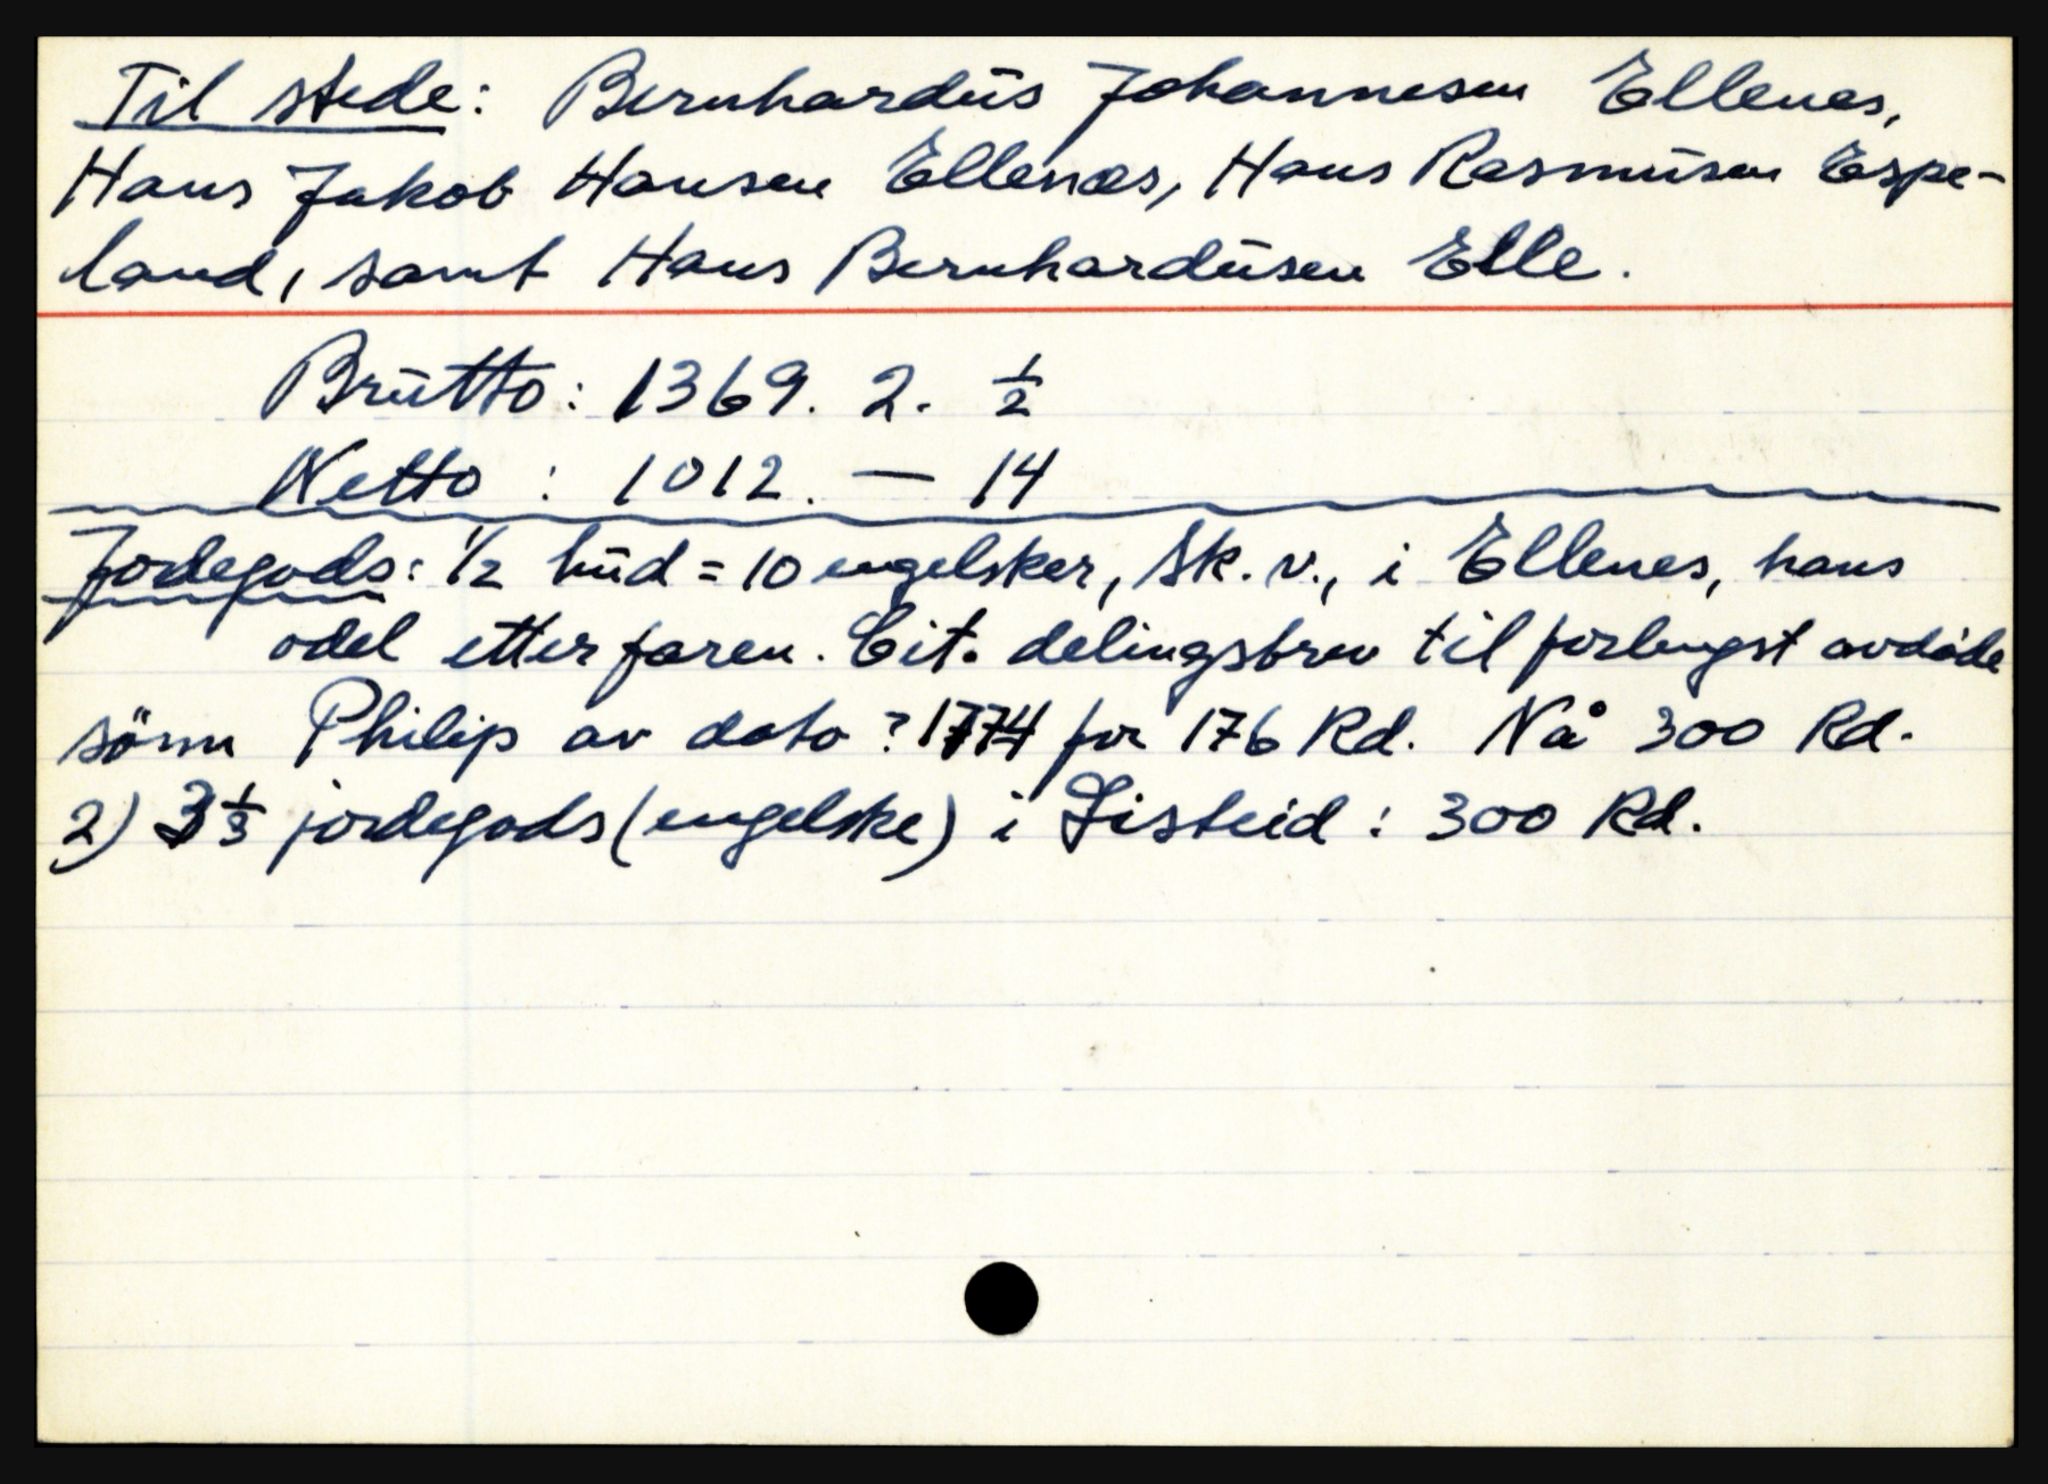 Til stede: Bernhardus Johannesen Ellenes,
Hans Jakob Hansen Ellenes, Hans Rasmusen Espe-
land, samt Hans Bernhardusen Elle.
Brutto: 1369. 2. ½
Netto : 1012. — 14
Jordegods: ½ hud = 10 engelsker, sk. v., i Ellenes, hans
odel etter faren. Cit. delingsbrev til forlengst avdøde
sönn Philip av dato ? 1774 for 176 Rd. Nå 300 Rd.
2) 3 ⅓ jordegods (engelske) i Listeid : 300 Rd.